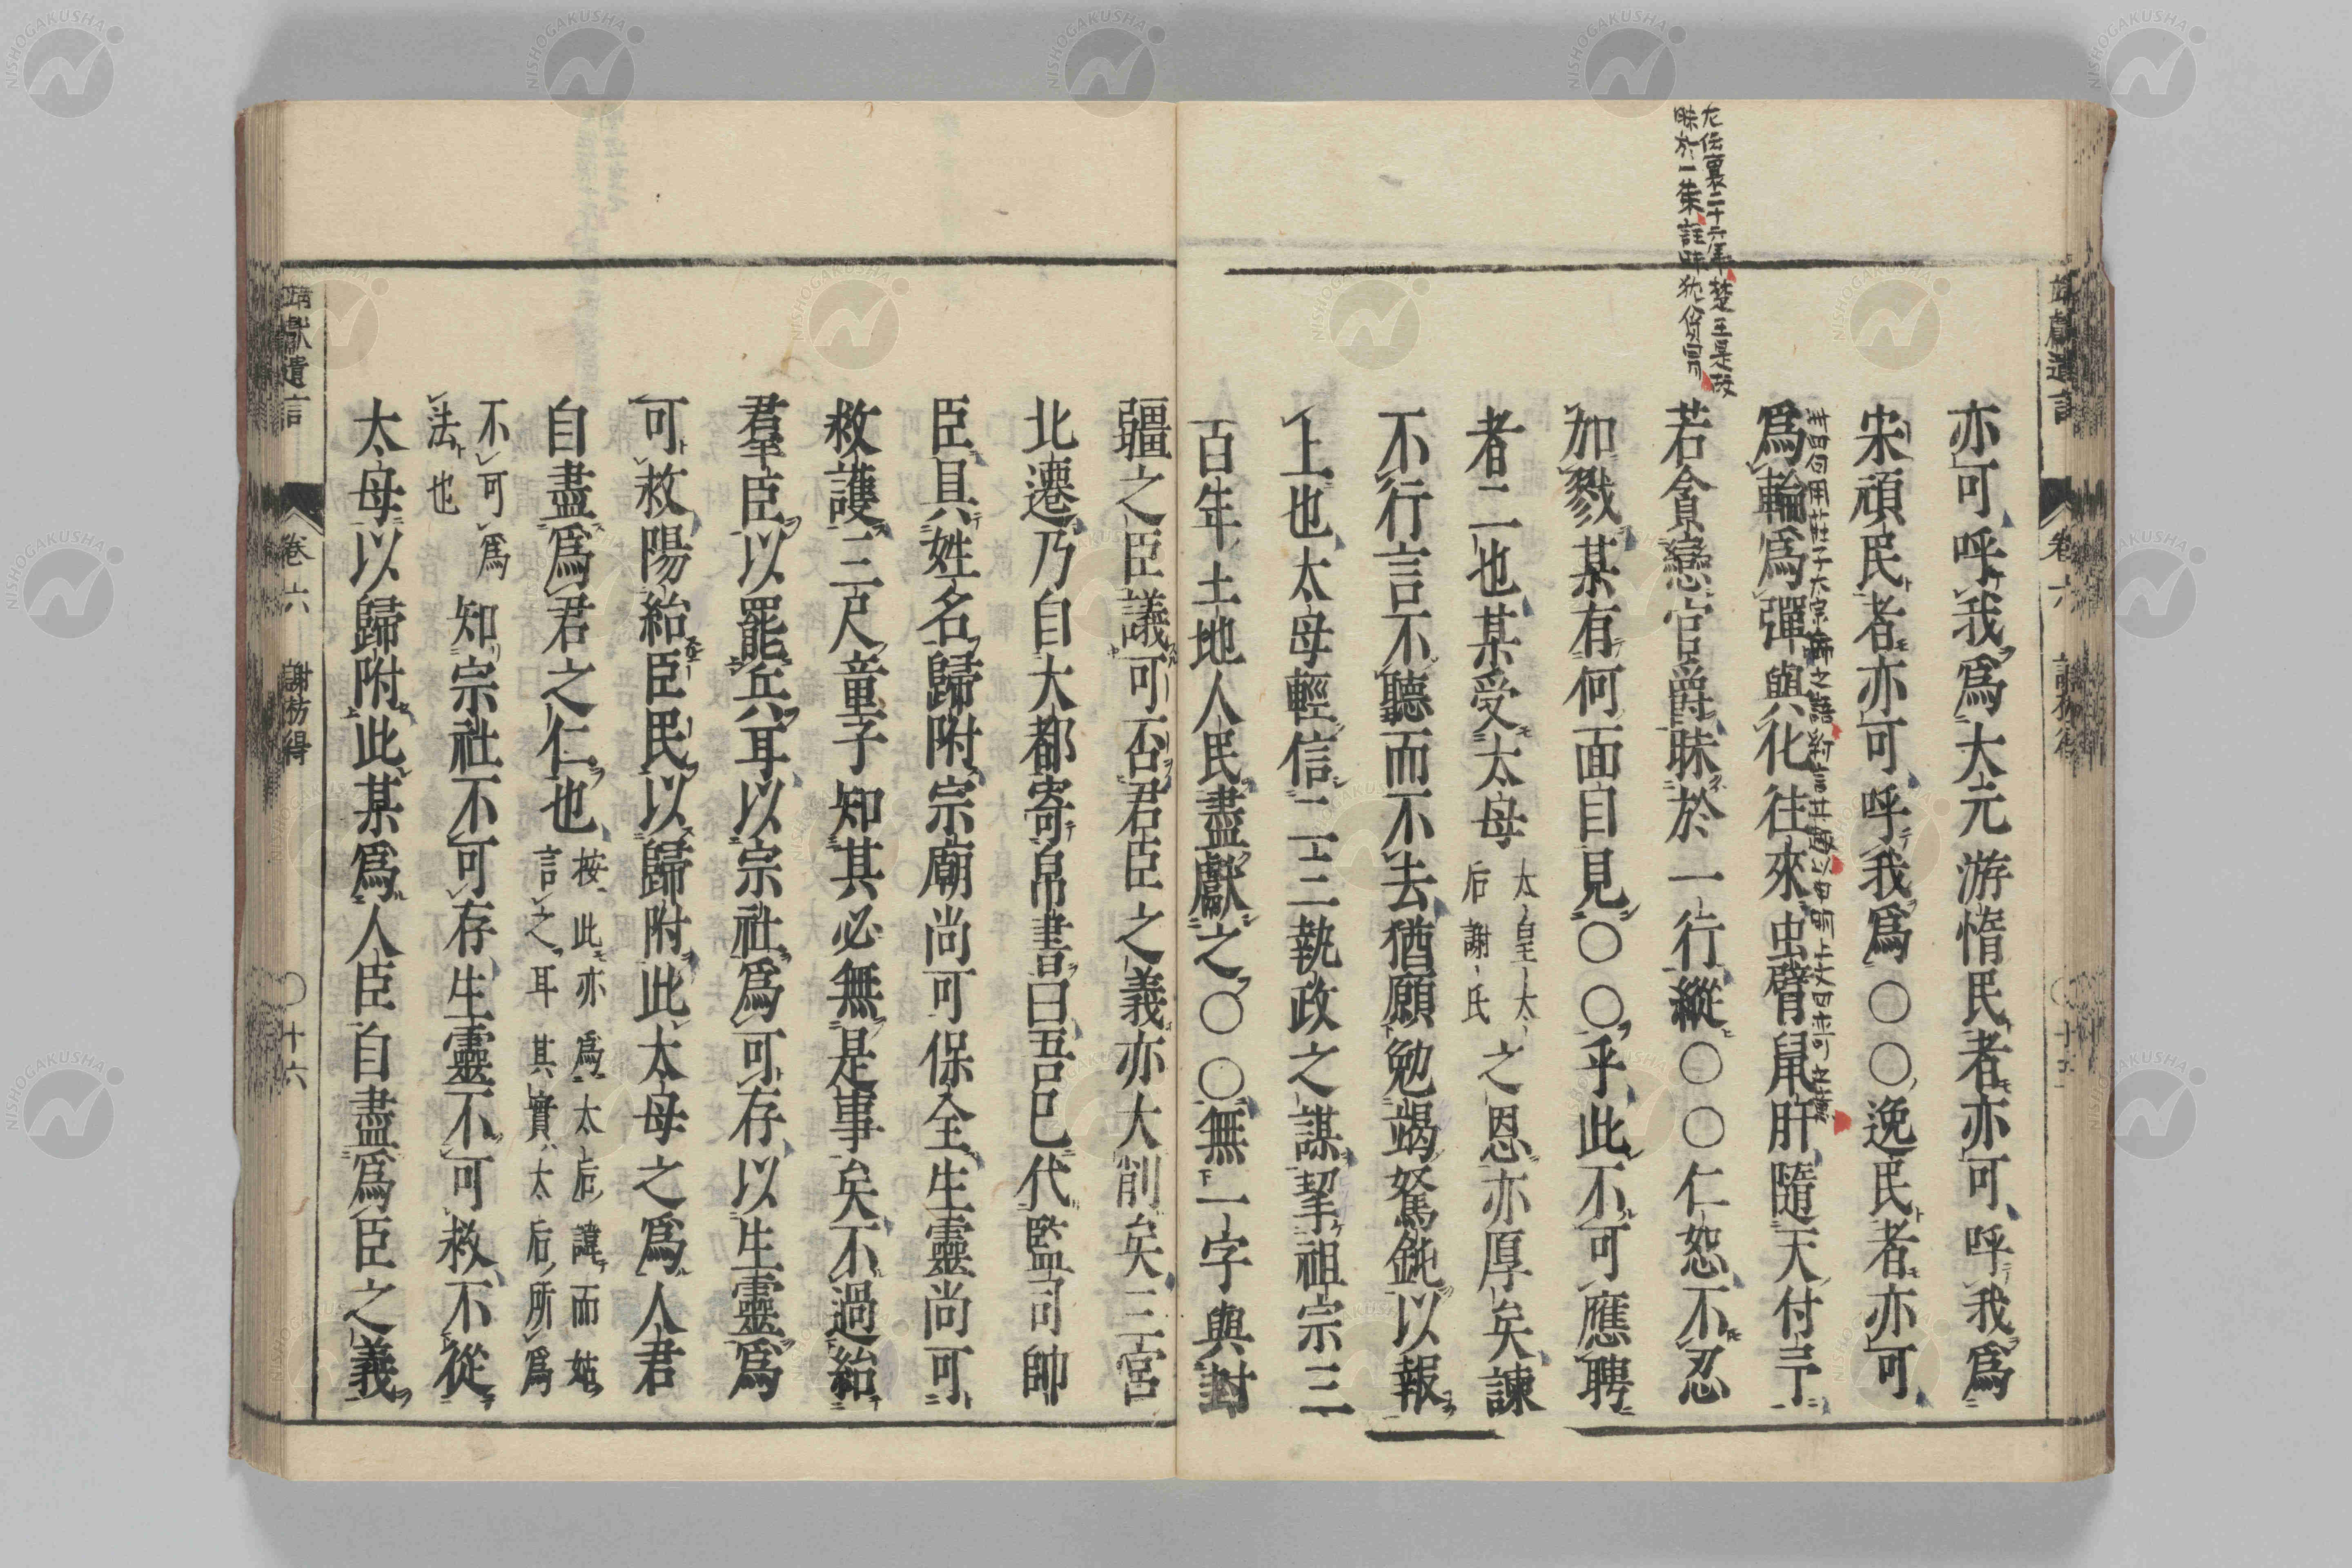 亦可呼我爲大元游惰民者亦可呼我爲
宋頑民者亦可呼我爲〇〇逸民者亦可
爲輪爲彈與化往來虫臂鼠肝隨天付予
若貪戀官爵昧於一行縱〇〇仁恕不忍
加戮某有何面目見〇〇乎此不可應聘
者二也某受太母太皇太后謝氏之恩亦厚矣諫
不行言不聽而不去猶願勉竭駑鈍以報
上也太母輕信二三執政之謀挈祖宗三
百年土地人民盡獻之〇〇無一字與封
疆之臣議可否君臣之義亦大削矣三宮
北遷乃自大都寄帛書曰吾已代監司帥
臣具姓名歸附宗廟尚可保全生靈尚可
救護三尺童子知其必無是事矣不過紿
羣臣以罷兵耳以宗社爲可存以生靈爲
可救陽紿臣民以歸附此太母之爲人君
自盡爲君之仁也按此亦爲太后諱而姑言之耳其實太后所爲
不可爲法也知宗社不可存生靈不可救不從
太母以歸附此某爲人臣自盡爲臣之義
左伝襄二十六年楚王是故
昧於一来註昧猶貪冒
靖獻遺言
卷六
謝枋得
〇十六